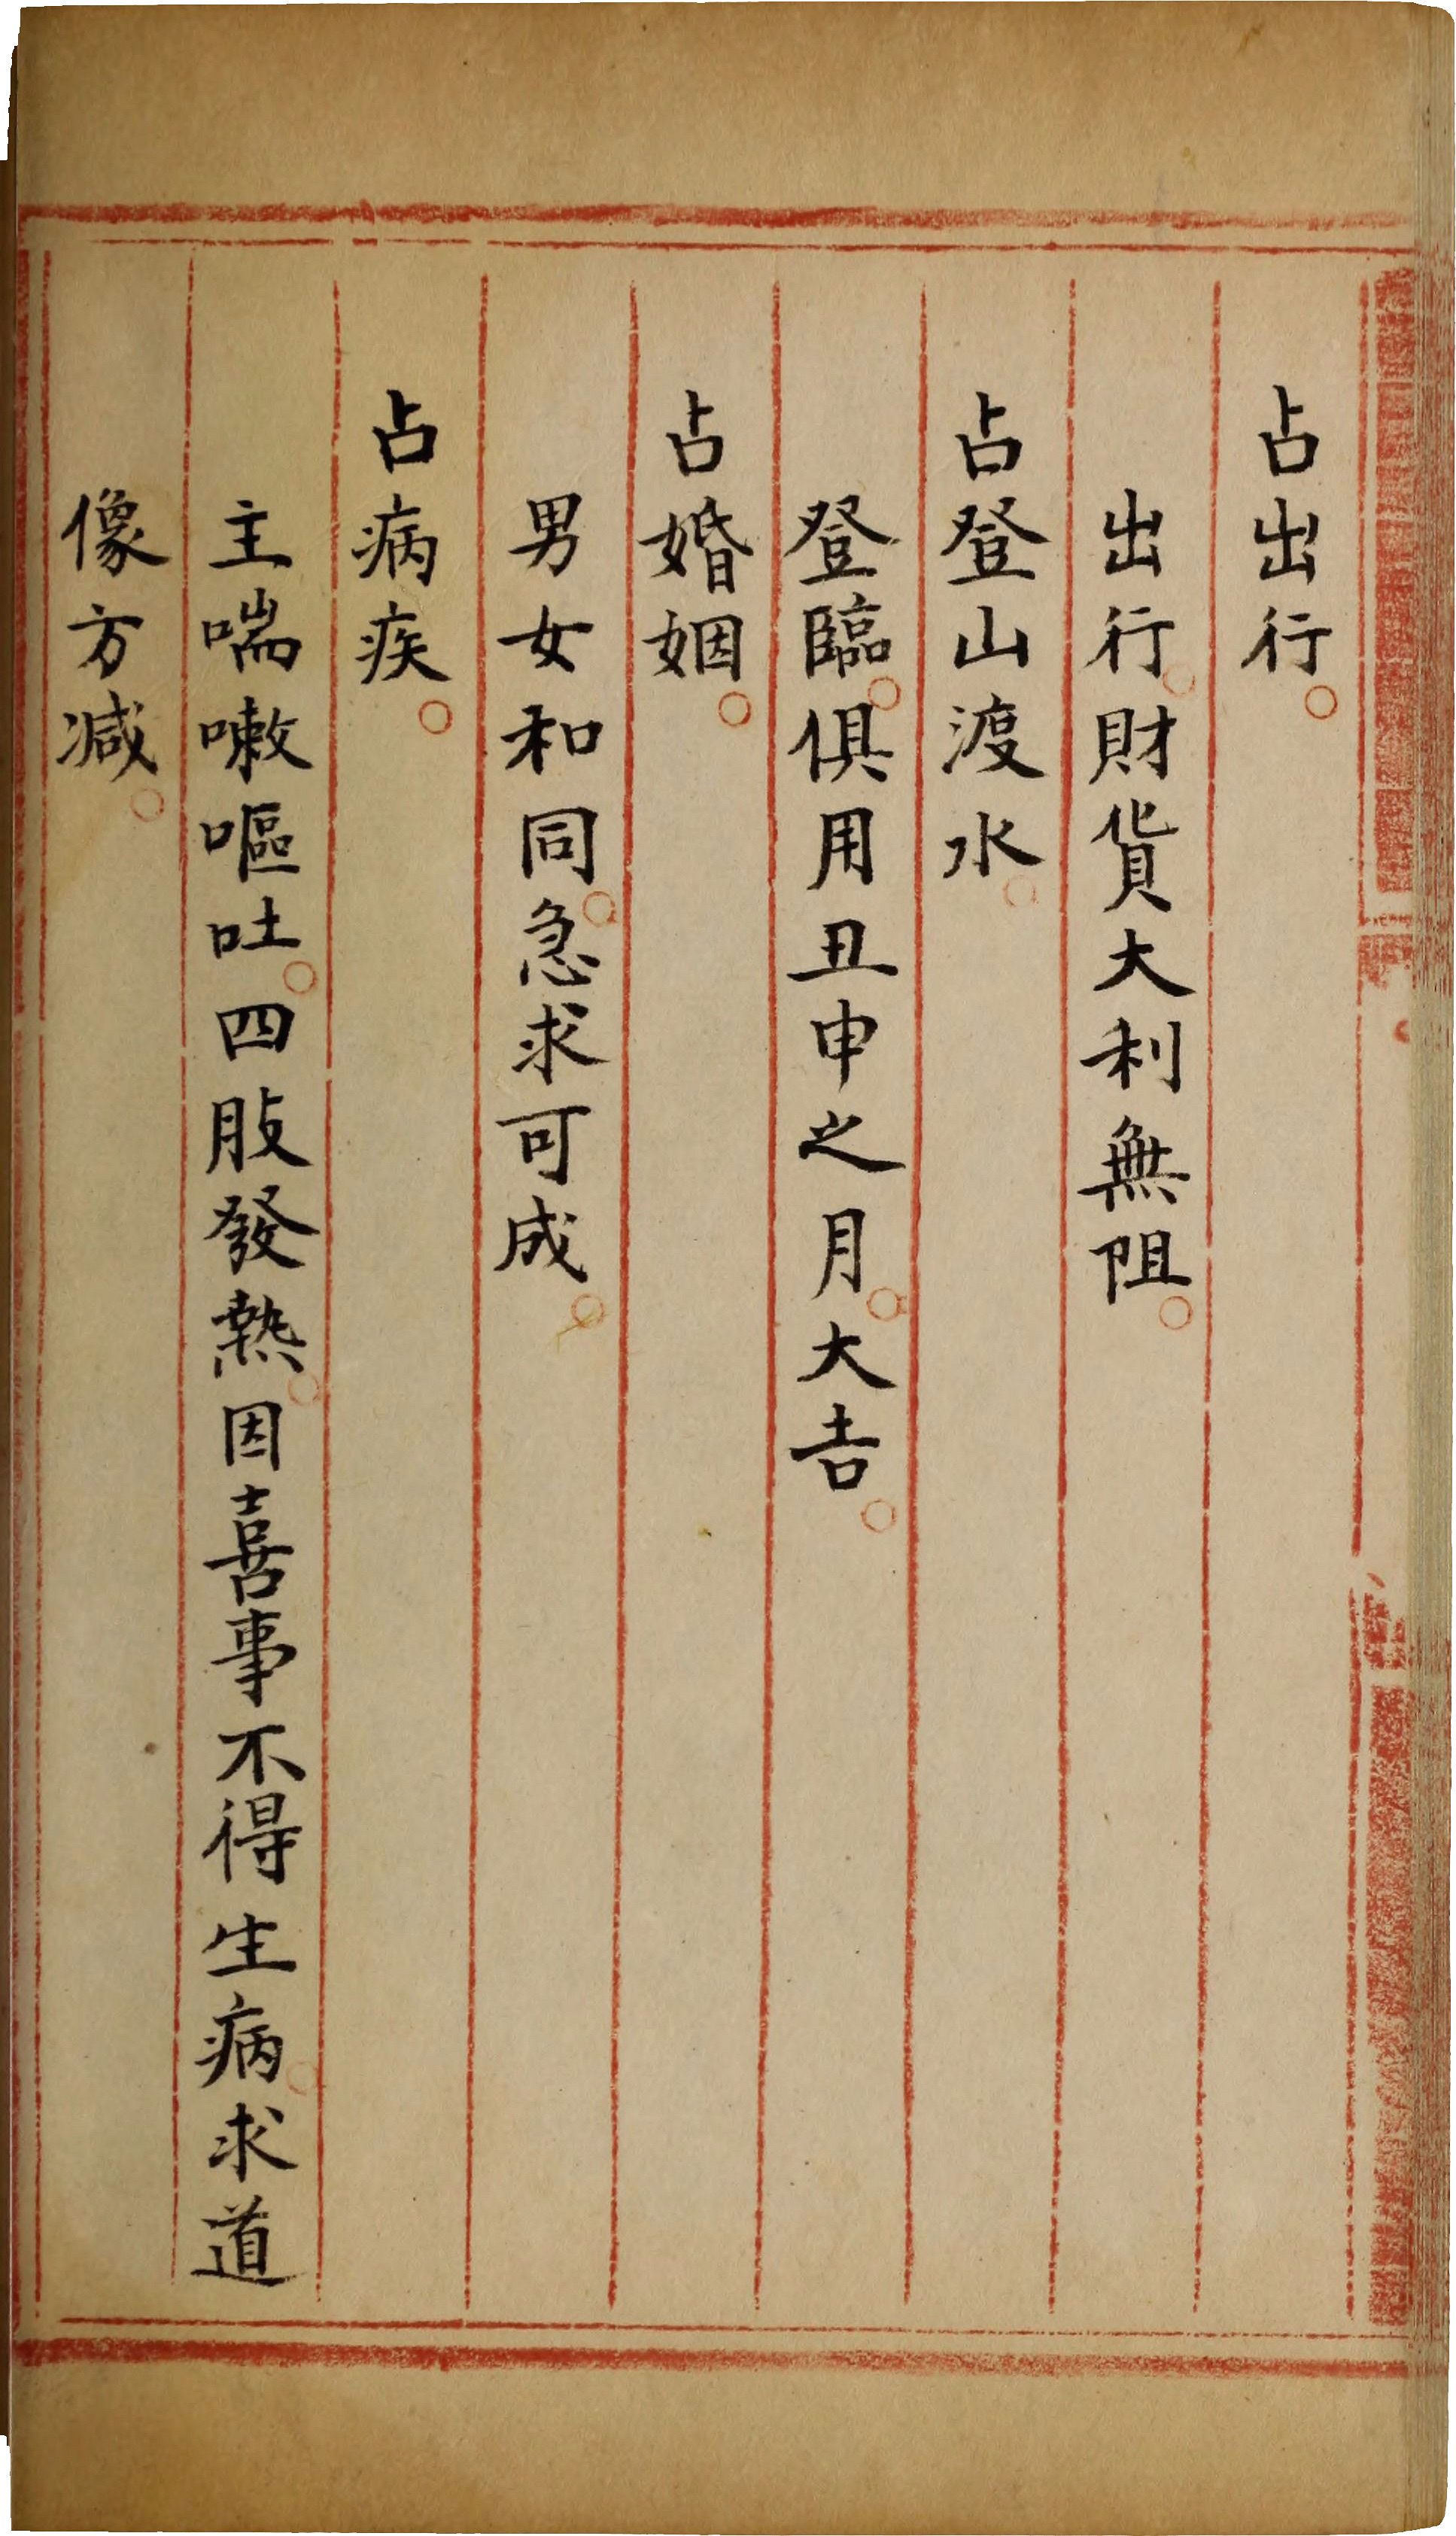 占出行○
出行○財貨大利無阻○
占登山渡水○
登臨○俱用丑申之月○大吉○
占婚姻○
男女和同○急求可成○
占病疾○
主喘嗽嘔吐○四肢發熱○因喜事不得生病○求道
像方減○